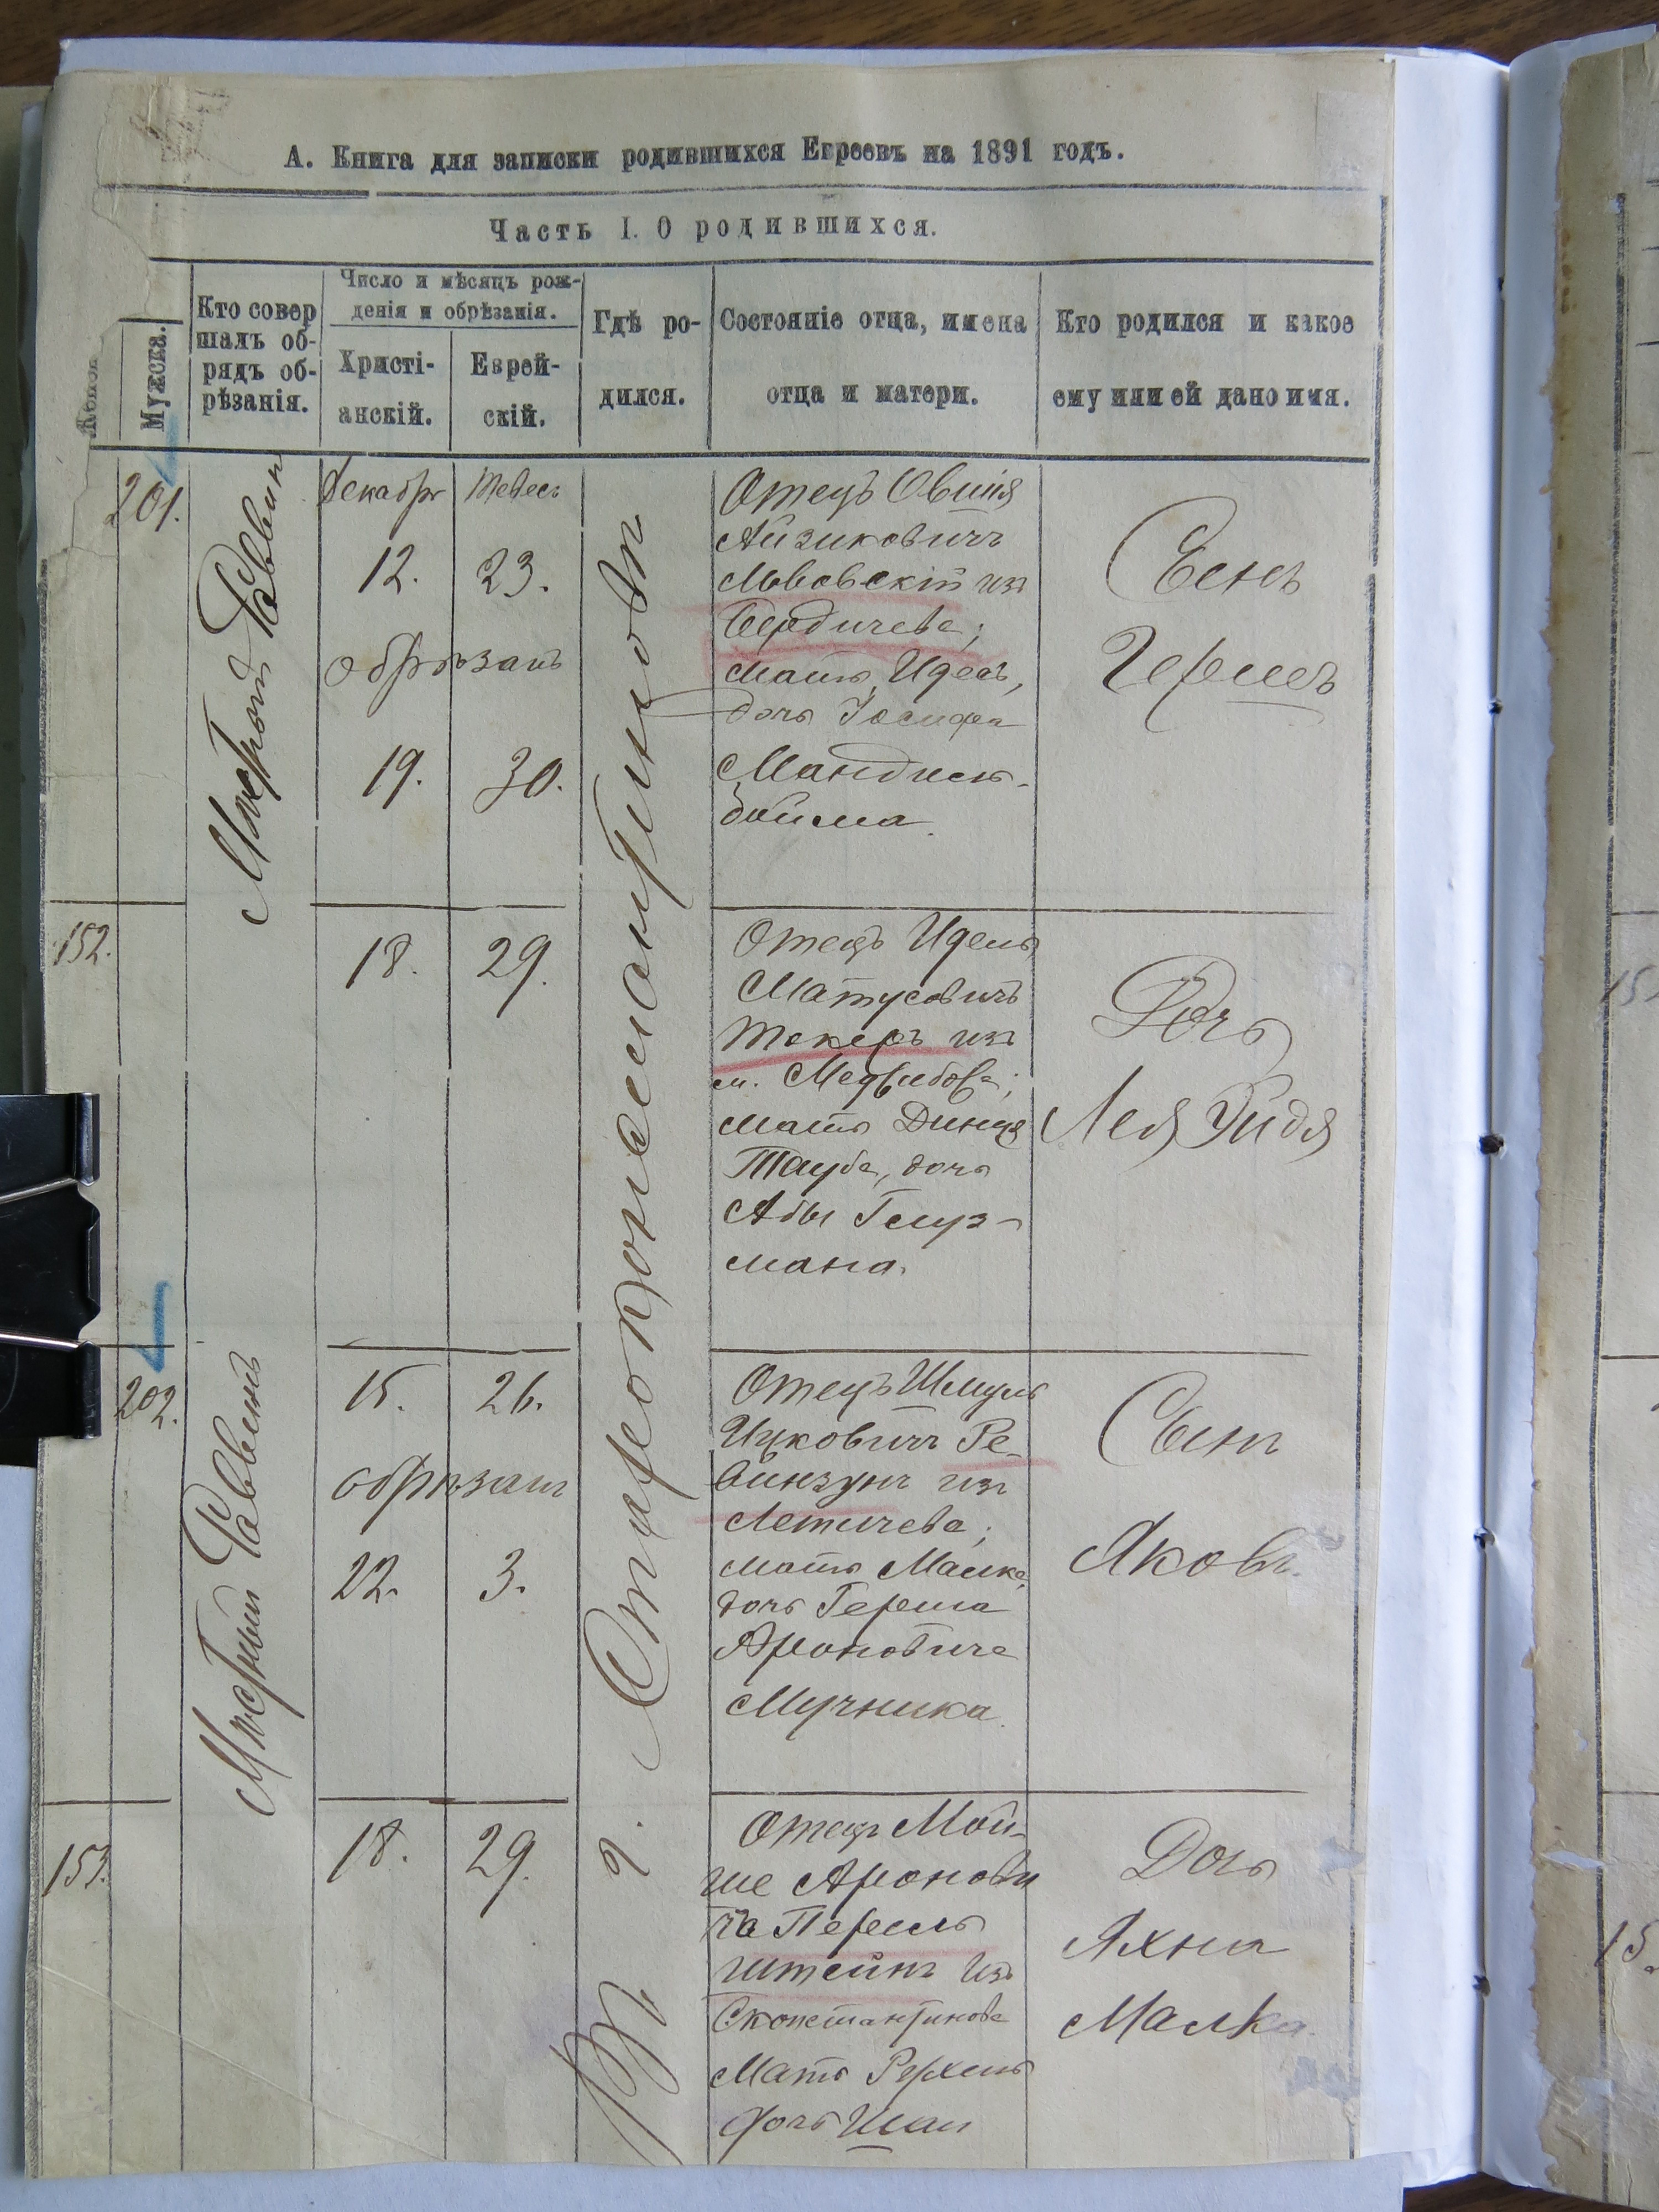 А. Книга для записки родившихся Евреевъ на 1891 годъ.
Часть I. О родившихся.
Мужска.
Кто совер
шалъ об-
рядъ об-
рѣзанія.
Число и мѣсяцъ рож-
денія и обрѣзанія.
Христі-
анскій.
Еврей-
скій.
Гдѣ ро-
дился.
Состояніе отца, имена
отца и матери.
Кто родился и какое
ему или ей дано имя.
Въ г. Староконстантиновѣ
201.
Мѣстный Раввинъ
Декабря Тевесъ
12. 23.
обрѣзанъ
19. 30.
Отецъ Овшія
Айзиковичъ
Львовскій изъ
Бердичева;
мать Идесъ,
дочь Іосифа
Мандель-
бойма.
Сынъ
Гершъ
152.
18. 29.
Отецъ Идель
Матусовичъ
Текеръ изъ
м.
мать Динця
Тауба, дочь
Абы Глуз-
мана.
Дочь
Лея Руйдя
202.
Мѣстный Раввинъ
15. 26.
обрѣзанъ
22. 3.
Отецъ Шмуль
Ицковичъ Ре-
бинзунъ изъ
Летичева;
мать Малка,
дочь Герша
Ароновича
Мучника.
Сынъ
Яковъ.
153.
18. 29.
Отецъ Мой-
ше Аронови
чъ Перель
штейнъ изъ
Сконстантинова
Мать Рухель
дочь Шаи
Дочь
Яхна
Малка.